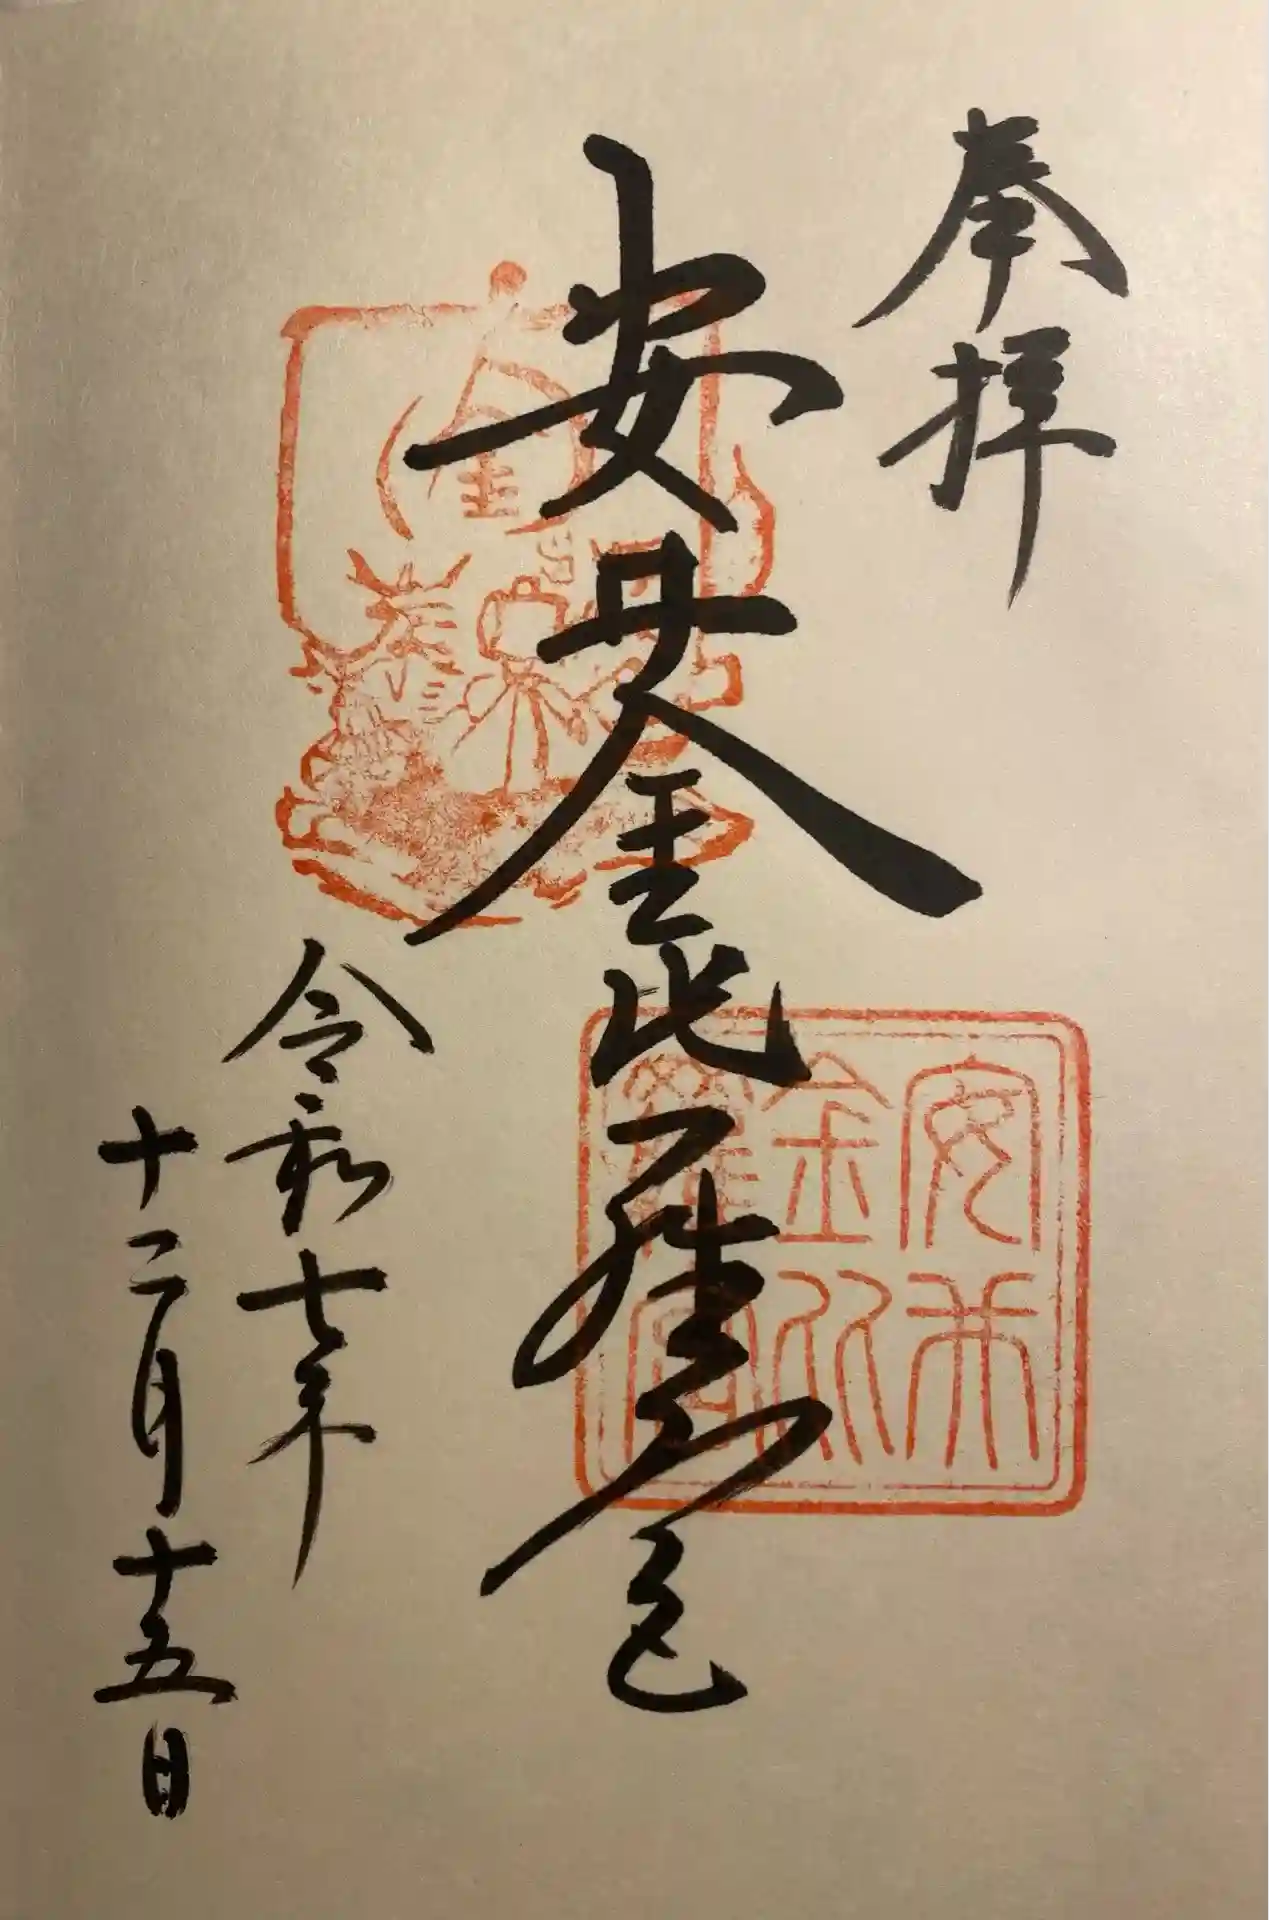 奉拝
安井金比羅宮
令和七年
十二月十五日
安井
金比
羅宮